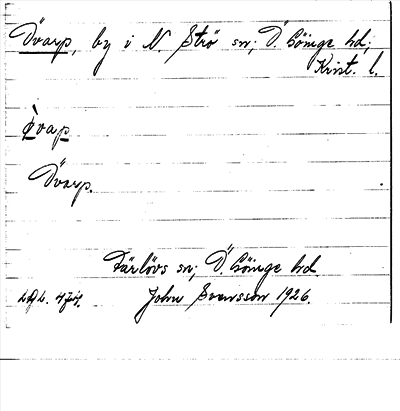 Övarp, by i N. Strö sn; Ö. Göinge hd;
Krist. l.
òvap
Övarp.
Färlövs sn; Ö. Göinge hd.
John Svensson 1926.